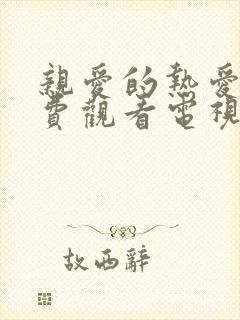 親愛的熱愛
費觀看電視
故西辭